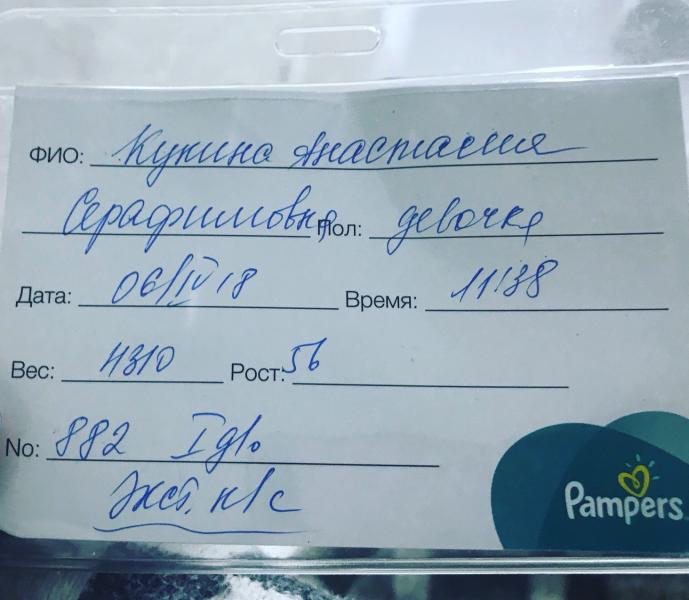 ФИО: Кукина Анастасия
Серафимовна Пол: девочка
Дата: 06/IV 18 Время: 11:38
Вес: 4310 Рост: 56
No: 882 I д/о
Экст. к/с
Pampers